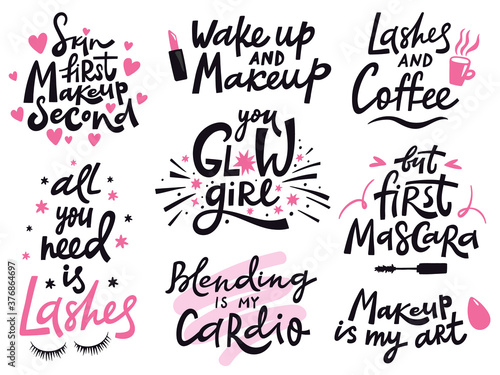 Skin
first
Makeup
Second
Wake up
AND
Makeup
Lashes
AND
Coffee
you
GLOW
girl
all
you
need
is
Lashes
but
first
Mascara
Blending
IS MY
Cardio
Makeup
is my art
Adobe Stock | #376864697